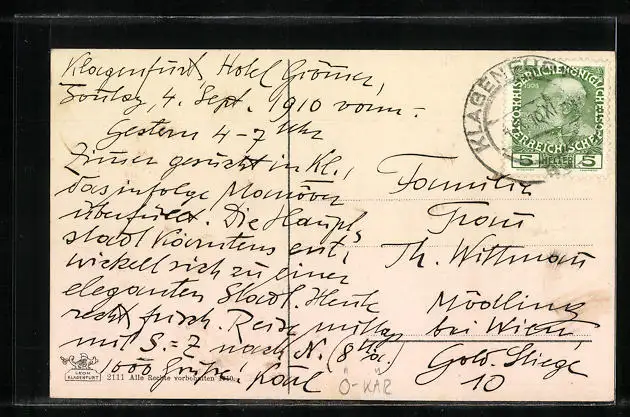 Klagenfurt, Hotel Grömer,
Sonntag, 4. Sept. 1910 vorm.
Gestern 4-7 Uhr
Zimmer gesucht in Kl.,
das infolge Manöver
überfüllt. Die Haupt-
stadt Kärntens ent-
wickelt sich zu einer
eleganten Stadt. Heute
recht frisch. Reise mittag
mit S.=Z nach N. (8
1000 Grüße! Karl
LEON
KLAGENFURT
2111 Alle Rechte vorbehalten 1910.
KLAGENFURT
1908
KAISERLICHE KÖNIGLICHE
ÖSTERREICHISCHE POST
5 HELLER 5
Familie
Frau
Th. Wittmann
Mödling
bei Wien
Gold. Stiege
10
Ö-KÄR